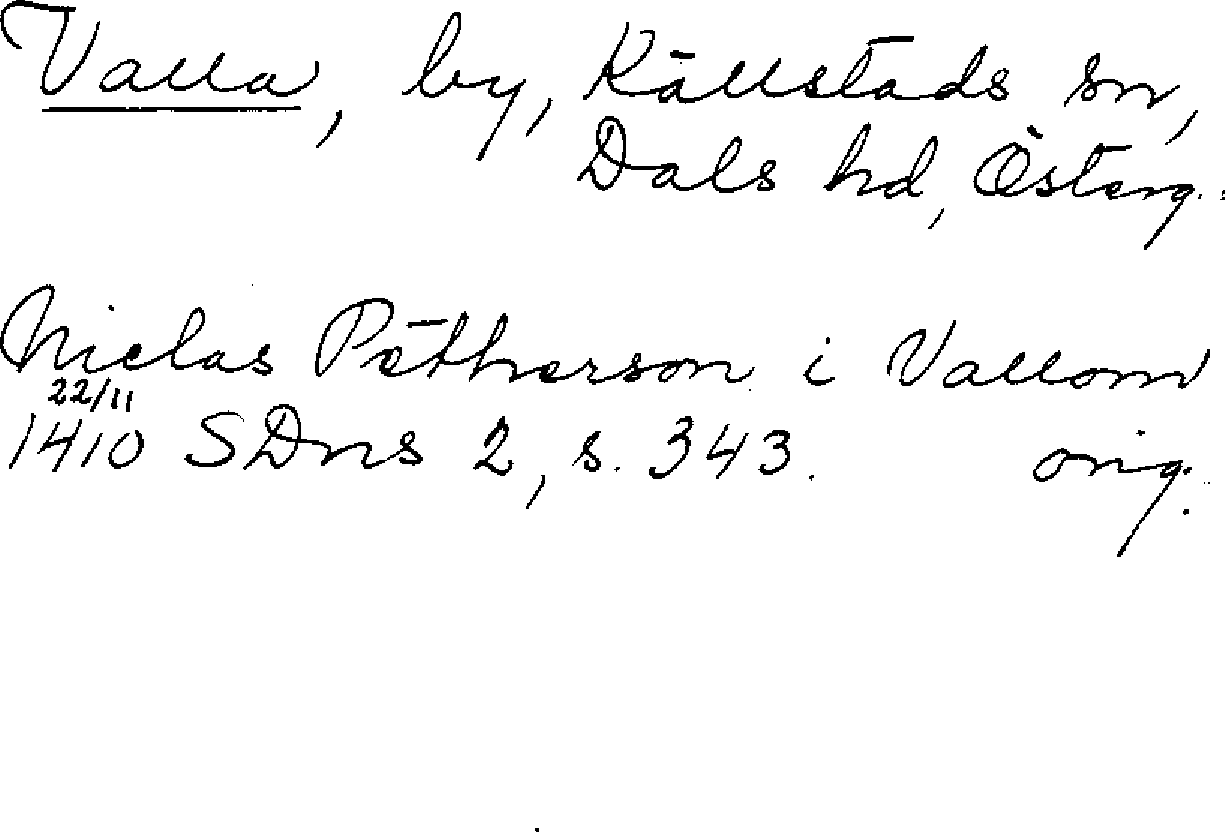 Valla, by, Källstads sn,
Dals hd, Österg.
Niclas Pætherson i Vallom
22/11
1410 SDns 2, s. 343. orig.